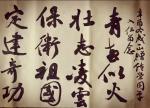 青春似火
壮志凌雲
保衛祖國
定建奇功